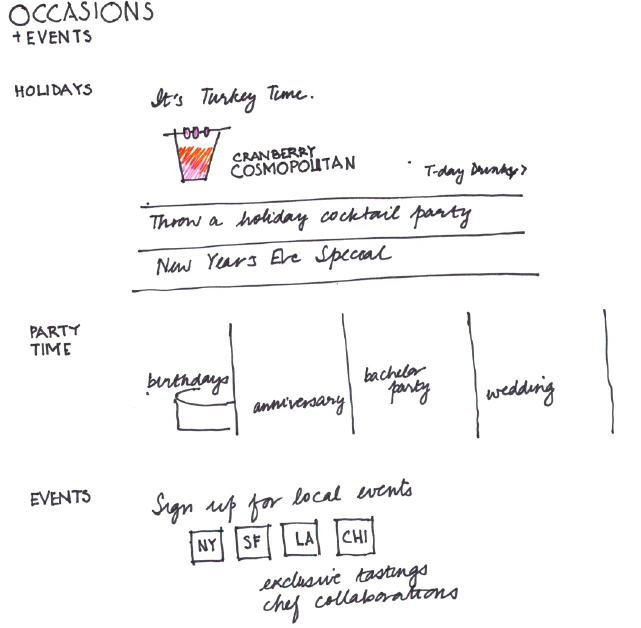 OCCASIONS
+ EVENTS
HOLIDAYS
It's Turkey Time.
CRANBERRY
COSMOPOLITAN
T-day Drinks >
Throw a holiday cocktail party
New Year's Eve Special
PARTY
TIME
birthdays
anniversary
bachelor
party
wedding
EVENTS
Sign up for local events
NY SF LA CHI
exclusive tastings
chef collaborations